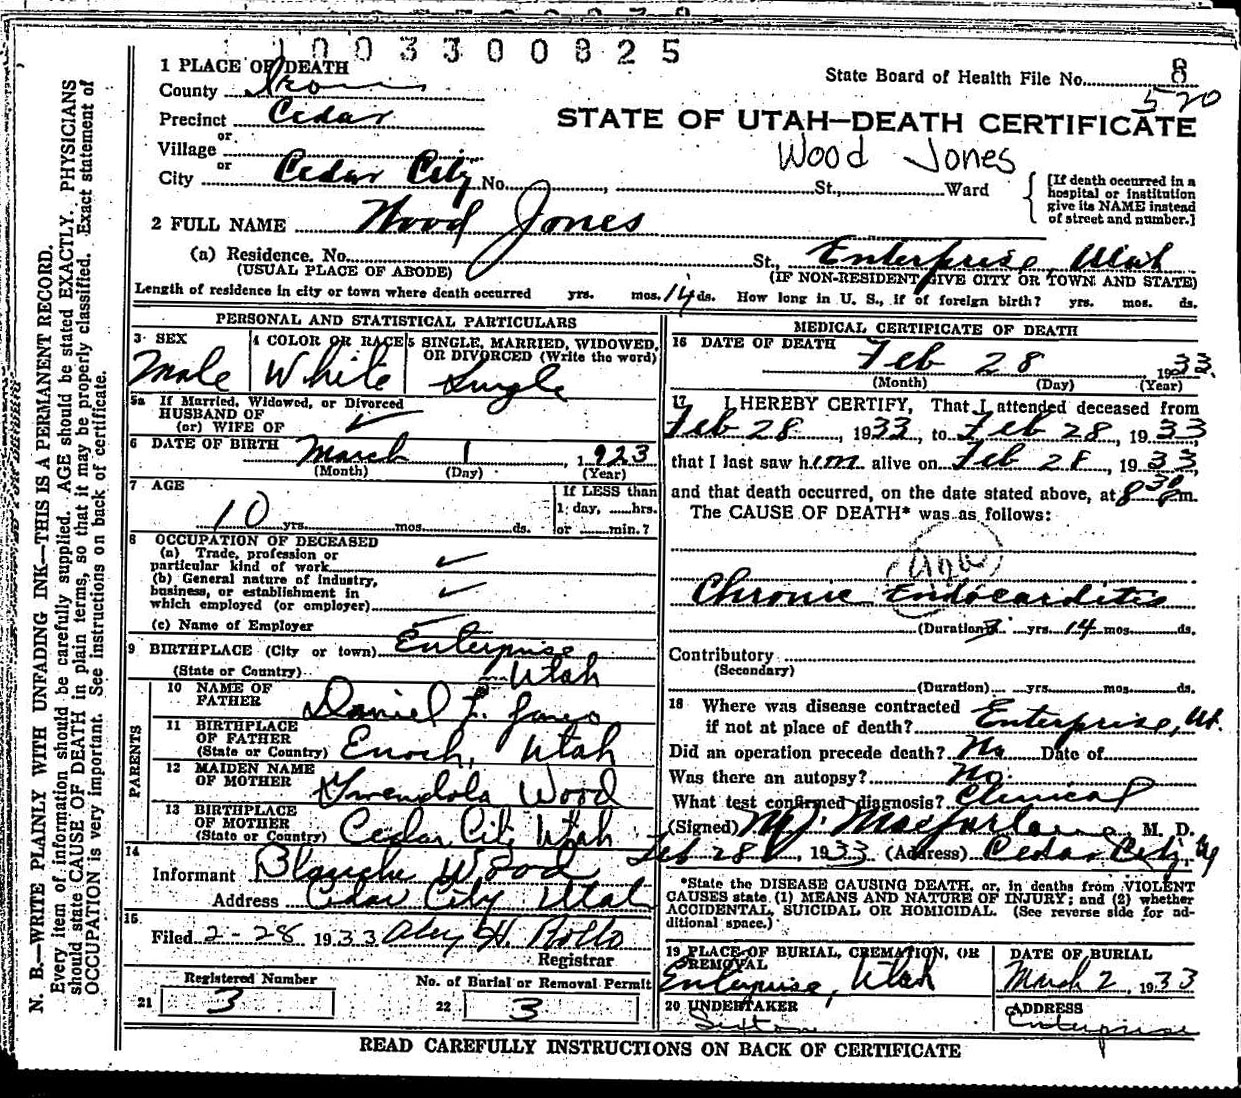 1003300825
1 PLACE OF DEATH
State Board of Health File No. 8
County Iron
520
Precinct Cedar
STATE OF UTAH—DEATH CERTIFICATE
or
Village
Wood Jones
or
City Cedar City No. St., Ward
[If death occurred in a
hospital or institution
give its NAME instead
of street and number.]
2 FULL NAME Wood Jones
(a) Residence. No. St., Enterprise, Utah
(USUAL PLACE OF ABODE) (IF NON-RESIDENT GIVE CITY OR TOWN AND STATE)
Length of residence in city or town where death occurred yrs. mos. 14 ds. How long in U. S., if of foreign birth? yrs. mos. ds.
PERSONAL AND STATISTICAL PARTICULARS
3 SEX
Male
4 COLOR OR RACE
White
5 SINGLE, MARRIED, WIDOWED,
OR DIVORCED (Write the word)
Single
5a If Married, Widowed, or Divorced
HUSBAND OF
(or) WIFE OF
6 DATE OF BIRTH March 1, 1923
(Month) (Day) (Year)
7 AGE
10 yrs. mos. ds.
If LESS than
1 day, hrs.
or min.?
8 OCCUPATION OF DECEASED
(a) Trade, profession or
particular kind of work
(b) General nature of industry,
business, or establishment in
which employed (or employer)
(c) Name of Employer
9 BIRTHPLACE (City or town) Enterprise
(State or Country) Utah
PARENTS
10 NAME OF
FATHER Daniel F. Jones
11 BIRTHPLACE
OF FATHER
(State or Country) Enoch, Utah
12 MAIDEN NAME
OF MOTHER Gwendola Wood
13 BIRTHPLACE
OF MOTHER
(State or Country) Cedar City Utah
14
Informant Blanche Wood
Address Cedar City Utah
15
Filed 2-28 1933 H. Rollo
Registrar
Registered Number
21 3
No. of Burial or Removal Permit
22 3
MEDICAL CERTIFICATE OF DEATH
16 DATE OF DEATH
Feb 28 1933.
(Month) (Day) (Year)
17 I HEREBY CERTIFY, That I attended deceased from
Feb 28, 1933, to Feb 28, 1933
that I last saw him alive on Feb 28, 1933,
and that death occurred, on the date stated above, at 8 30 Pm.
The CAUSE OF DEATH* was as follows:
Chronic Endocarditis
(Duration) 3 yrs. 14 mos. ds.
Contributory
(Secondary)
(Duration) yrs. mos. ds.
18 Where was disease contracted
if not at place of death? Enterprise, Ut.
Did an operation precede death? No Date of
Was there an autopsy? No.
What test confirmed diagnosis? Clinical
(Signed) M.J. Macfarlane, M. D.
Feb 28, 1933 (Address) Cedar City, U
*State the DISEASE CAUSING DEATH, or, in deaths from VIOLENT
CAUSES state (1) MEANS AND NATURE OF INJURY; and (2) whether
ACCIDENTAL, SUICIDAL OR HOMICIDAL. (See reverse side for ad-
ditional space.)
19 PLACE OF BURIAL, CREMATION, OR
REMOVAL
Enterprise, Utah
DATE OF BURIAL
March 2, 1933
20 UNDERTAKER
Sexton
ADDRESS
Enterprise
READ CAREFULLY INSTRUCTIONS ON BACK OF CERTIFICATE
N. B.—WRITE PLAINLY WITH UNFADING INK—THIS IS A PERMANENT RECORD.
Every item of information should be carefully supplied. AGE should be stated EXACTLY. PHYSICIANS
should state CAUSE OF DEATH in plain terms, so that it may be properly classified. Exact statement of
OCCUPATION is very important. See instructions on back of certificate.